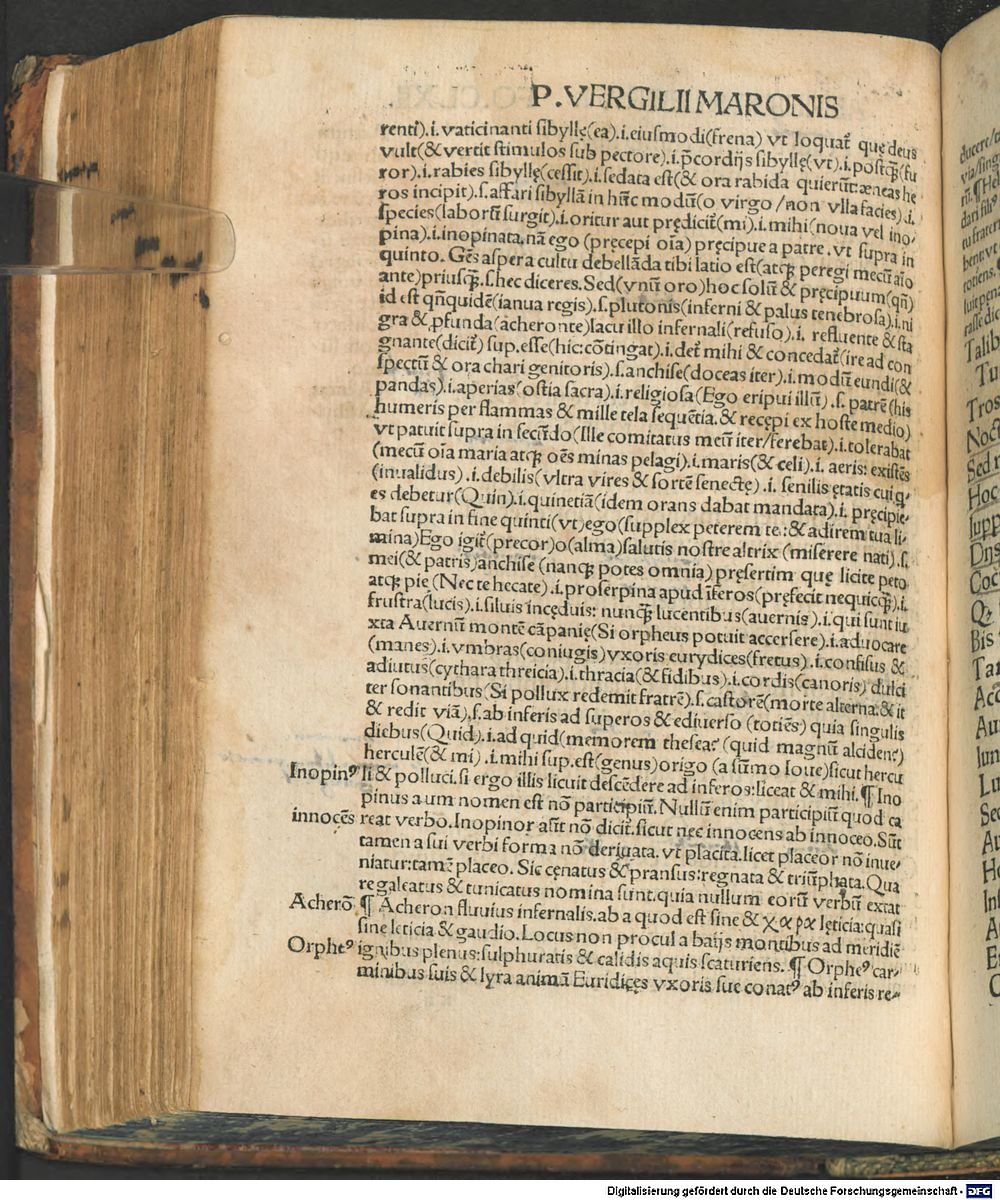 P. VERGILII MARONIS
renti).i.vaticinanti sibyllę(ea).i.eiusmodi(frena) vt loquat̃ quę deus
vult(& vertit stimulos sub pectore).i.p̃cordijs sibyllę(vt).i.postq̃(fu
ror).i.rabies sibyllę(cessit).i.sedata est(& ora rabida quierũt:æneas he
ros incipit).s.affari sibyllã in hũc modũ(o virgo/non vlla facies).i.
species(laborũ surgit).i.oritur aut prędicit̃(mi).i.mihi(noua vel ino-
pina).i.inopinata.nã ego (pręcepi oĩa) pręcipue a patre. vt supra in
quinto. Gẽs aspera cultu debellãda tibi latio est(atq; peregi mecũ aĩo
ante)priusq̃.s.hec diceres.Sed(vnũ oro)hoc solũ & pręcipuum(qñ)
id est qñquidẽ(ianua regis).s.plutonis(inferni & palus tenebrosa).i.ni
gra & ꝓfunda(acheronte)lacu illo infernali(refuso).i. refluente & sta
gnante(dicit̃) sup.esse(hic:cõtingat).i.det̃ mihi & concedat̃(ire ad con
spectũ & ora chari genitoris).s.anchise(doceas iter).i.modũ eundi(&
pandas).i.aperias(ostia sacra).i.religiosa(Ego eripui illũ).s. patrẽ(his
humeris per flammas & mille tela sequẽtia.& recępi ex hoste medio)
vt patuit supra in secũdo(Ille comitatus meũ iter/ferebat).i.tolerabat
(mecũ oĩa maria atq; oẽs minas pelagi).i.maris(& celi).i. aeris: existẽs
(inualidus).i.debilis(vltra vires & sortẽ senectę).i. senilis ętatis cui q-
es debetur(Quin).i.quinetiã(idem orans dabat mandata).i. pręcipie-
bat supra in fine quinti(vt)ego(supplex peterem te:& adirem tua li-
mina)Ego igit̃(precor)o(alma)salutis nostre altrix (miserere nati).s.
mei(& patris)anchise (nanq; potes omnia) pręsertim quę licite peto
atq; pie (Nec te hecate).i.proserpina apud ĩferos(pręfecit nequicq̃).i.
frustra(lucis).i.siluis incęduis: nunq̃ lucentibus(auernis).i.qui sunt iu
xta Auernũ montẽ cãpanię(Si orpheus potuit accersere).i.aduocare
(manes).i.vmbras(coniugis)vxoris eurydices(fretus).i.confisus &
adiutus(cythara threicia).i.thracia(& fidibus).i.cordis(canoris) dulci
ter sonantibus(Si pollux redemit fratrẽ).s.castorẽ(morte alterna.& it
& redit viã).s.ab inferis ad superos & ediuerso (totiẽs) quia singulis
diebus(Quid).i.ad quid(memorem thesea? (quid magnũ alciden?)
herculẽ(& mi).i.mihi sup.est(genus)origo (a sũmo Ioue)sicut hercu
Inopinꝰ li & polluci.si ergo illis licuit descẽdere ad inferos:liceat & mihi.¶ Ino
pinus a um nomen est nõ participiũ. Nullũ enim participiũ quod ca
innocẽs reat verbo. Inopinor aũt nõ dicit̃.sicut nec innocens ab innoceo.Sũt
tamen a sui verbi forma nõ deriuata. vt placita.licet placeor nõ inue-
niatur:tamẽ placeo. Sic cęnatus & pransus:regnata & triũphata. Qua
re galeatus & tunicatus nomina sunt.quia nullum eorũ verbũ extat
Acherõ ¶ Acheron fluuius infernalis.ab a quod est sine & χαρα lęticia:quasi
sine leticia & gaudio. Locus non procul a baijs montibus ad meridiẽ
Orpheꝰ ignibus plenus:sulphuratis & calidis aquis scaturiens. ¶ Orpheꝰ car-
minibus suis & lyra animã Euridicęs vxoris sue conatꝰ ab inferis re-
ducere/
via/sing
dari
tu frater
bent vt
totiens.
luit pena
rasse dic
Talib
Tu
Tros
Noct
Sed
Hoc
Iupp
Dñs
Coc
Bis
Tar
Acc
Au
Iun
Lu
Sec
Digitalisierung gefördert durch die Deutsche Forschungsgemeinschaft - DFG